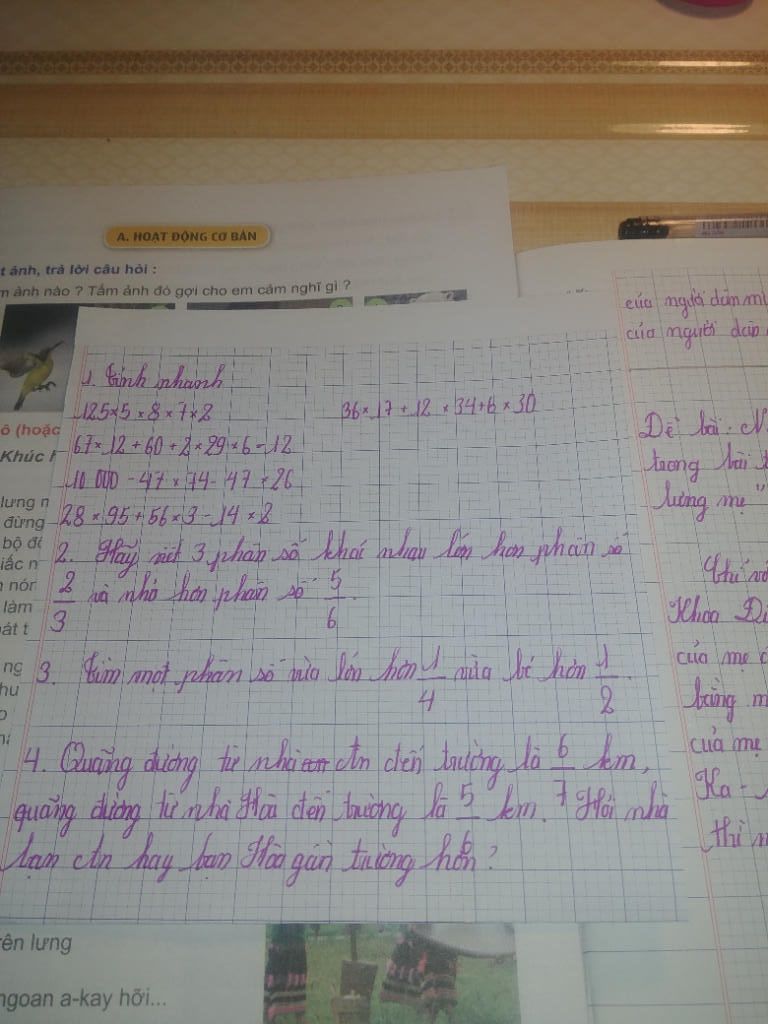 A. HOẠT ĐỘNG CƠ BẢN
t ảnh, trả lời câu hỏi :
m ảnh nào ? Tấm ảnh đó gợi cho em cảm nghĩ gì ?
ô (hoặc
Khúc h
lưng n
đừng
bộ đ
iấc n
nón
làm
át t
ng
hu
1. tính nhanh
125 × 5 × 8 × 7 × 2
36 × 17 + 12 × 34 + 6 × 30
67 × 12 + 60 + 2 × 29 × 6 - 12
10 000 - 47 × 74 - 47 × 26
28 × 95 + 56 × 3 - 14 × 2
2. Hãy viết 3 phân số khác nhau lớn hơn phân số
2/3 và nhỏ hơn phân số 5/6.
3. tìm một phân số vừa lớn hơn 1/4 vừa bé hơn 1/2.
4. Quãng đường từ nhà An đến trường là 6/7 km,
quãng đường từ nhà Hoà đến trường là 5/6 km. Hỏi nhà
bạn An hay bạn Hoà gần trường hơn?
của người dân mi
của người dân
Đề bài :
trong bài t
lưng mẹ"
Khoa Đi
của mẹ
bằng m
của mẹ
Ka -
thì
rên lưng
ngoan a-kay hỡi...